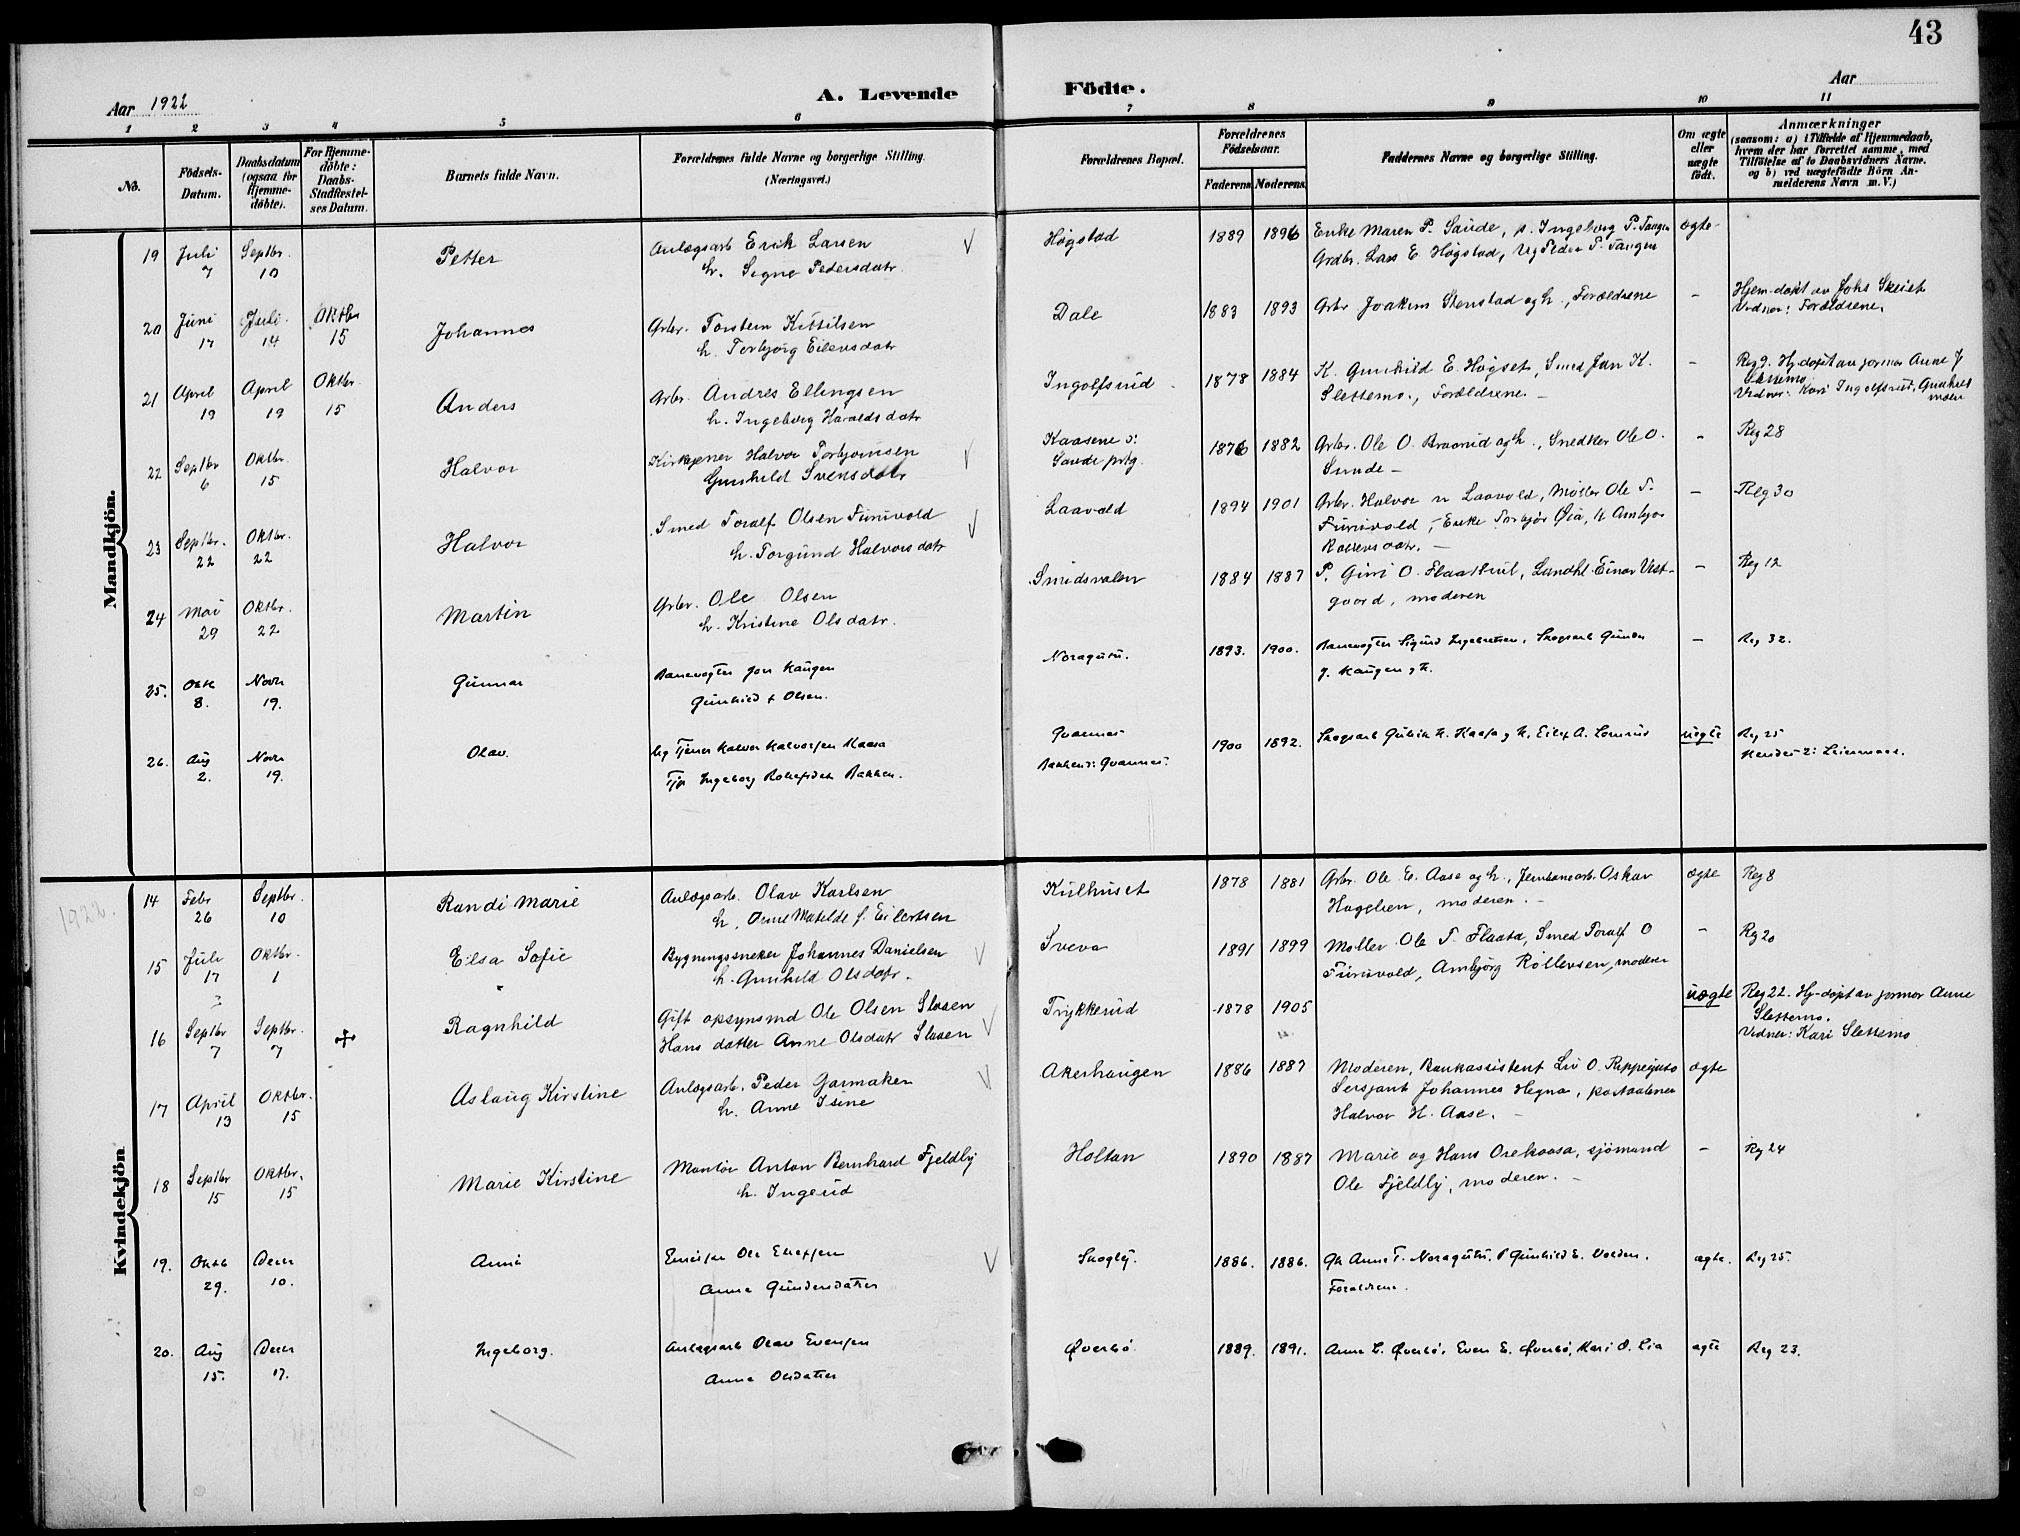 43
Aar 1922
A. Levende
Födte.
Aar
1 2 3 4 5 6 7 8 9 10 11
No.
Födsels-
Datum.
Daabsdatum
(ogsaa for
Hjemme-
döbte).
For Hjemme-
döbte:
Daabs-
Stadfæstel-
ses Datum.
Barnets fulde Navn.
Forældrenes fulde Navne og borgerlige Stilling.
(Næringsvei.)
Forældrenes Bopæl.
Forældrenes
Födselsaar.
Faderens Moderens
Faddernes Navne og borgerlige Stilling.
Om ægte
eller
uægte
födt.
Anmærkninger
(saasom: a) i Tilfælde af Hjemmedaab,
hvem der har forrettet samme, med
Tilföielse af to Daabsvidners Navne.
og b) ved uægtefödte Börn An-
melderens Navn m. V.)
Mandkjön.
19 Juli 7 Septbr. 10 Petter Anlægsarb Erik Larsen
h. Signe Pedersdatr.
Høgstad 1889 1896 Enke Maren P. Saude, p. Ingeborg P. Tangen ægte
Grdbr. Lars E Høgstad, Ug Peder P. Tangen
20 Juni 17 Juli 14 Oktbr 15 Johannes Grbr. Torstein Kittilsen
h. Torbjørg Eilevsdatr
Dale 1883 1893 Grbr Joakim Stenstad og h., Forældrene –
Hjem-døpt av Johs Skeist
Vidner: Forældrene.
21 April 19 April 19 Oktbr. 15 Anders Grbr. Andres Ellingsen
h. Ingeborg Haraldsdatr
Ingolfsrud 1878 1884 K. Gunhild E. Høgset, Smed Jan K.
Slettemo, Forældrene –
Reg 9. Hj-døpt av jormor Anne J
Slettemo
Vidner: Kari Ingolfsrud, Gunhild
moen
22 Septbr 6 Oktbr. 15 Halvor Kirketjener Halvor Torbjørnsen
Gunhild Svensdatr
Kaasene i:
Saude prtg. 1876 1882 Grbr. Ole O. Braarud og h., Snedker Ole O.
Sunde –
Reg 28
23 Septbr. 22 Oktbr. 22 Halvor Smed Toralf Olsen Furuvold
h. Torgund Halvorsdatr
Laavald 1894 1901 Grbr. Halvor Laavold, Møller Ole T.
Furuvold, Enke Torbjør Øia, Ambjør
Rollevsdatr. –
Reg 30
24 Mai 29 Oktbr. 22 Martin Grbr. Ole Olsen
h. Kristine Olsdatr.
Smidsvalen 1884 1887 P. Guri O. Flaathul, Landhl. Einar Vest-
gaard, moderen –
Reg 12
25. Oktb 8. Novr 19. Gunnar Banevogter Jon Haugen
Gunhild f Olsen.
Noragutu. 1893. 1900. Banevogter Sigurd Ingebretsen, Skogsarb Gunder
J. Haugen g h. –
Reg 32.
26. Aug 2. Novr 19. Olav. Ug Tjener Halvor Halvorsen Haasa
Tjp Ingeborg Rolefsdatr Bakken.
Gvannes
Bakken i: Gvannes. 1900 1892. uægte Reg 25
Hendes 2: Leiermaal.
Kvindekjön
1922.
14 Febr 26 Septbr. 10 Randi Marie Anlægsarb. Olav Karlsen
h. Anne Matilde f. Eilertsen
Kulhuset 1878 1881 Grbr. Ole E. Aase og h., Jernbanearb. Oskar
Hagelien, moderen. –
ægte Reg 8
15 Juli 17 Oktbr. 1 Elsa Sofie Bygningssneker Johannes Danielsen
h. Gunhild Olsdatr.
Sveva 1891 1899 Møller Ole T. Flaata, Smed Toralf O
Furuvold, Ambjörg Rollevsen, moderen
– Reg 20
16 Septbr 7 Septbr. 7 Ragnhild Gift opsynsmd Ole Olsen Slaaen
Hans datter Anne Olsdatr Slaaen
Trykkerud 1878 1905 uægte Reg 22. Hj-døpt av jormor Anne
Slettemo.
Vidner: Kari Slettemo
17 April 13 Oktbr. 15 Aslaug Kirstine Anlægsarb. Peder Garmaker
h. Anne Isine
Akerhaugen 1886 1887 Moderen, Bankassistent Liv O. Rippegutu
Sersjant Johannes Hegna, postaabner
Halvor H. Aase. –
ægte
18 Septbr 15 Oktbr. 15 Marie Kirstine Montör Anton Bernhard Fjeldby
h. Ingerid
Holtan 1890 1887 Marie og Hans Orekaasa, sjömand
Ole Fjeldby, moderen. –
– Reg 24
19. Oktb 29. Decbr 10. Anne Ole Ellefsen
Anne Gundersdatter
Skogly. 1886. 1886. Gk Anne T. Noragutu. P Gunhild E. Volden.
Forældrene.
ægte. Reg 25.
20. Aug 15. Decbr 17. Ingeborg. Anlægsarb Olav Evensen
Anne Olsdatter
Øverbö. 1889. 1891. Anne L. Øverbö, Even E. Øverbö, Kari O. Lia ægte Reg 23.